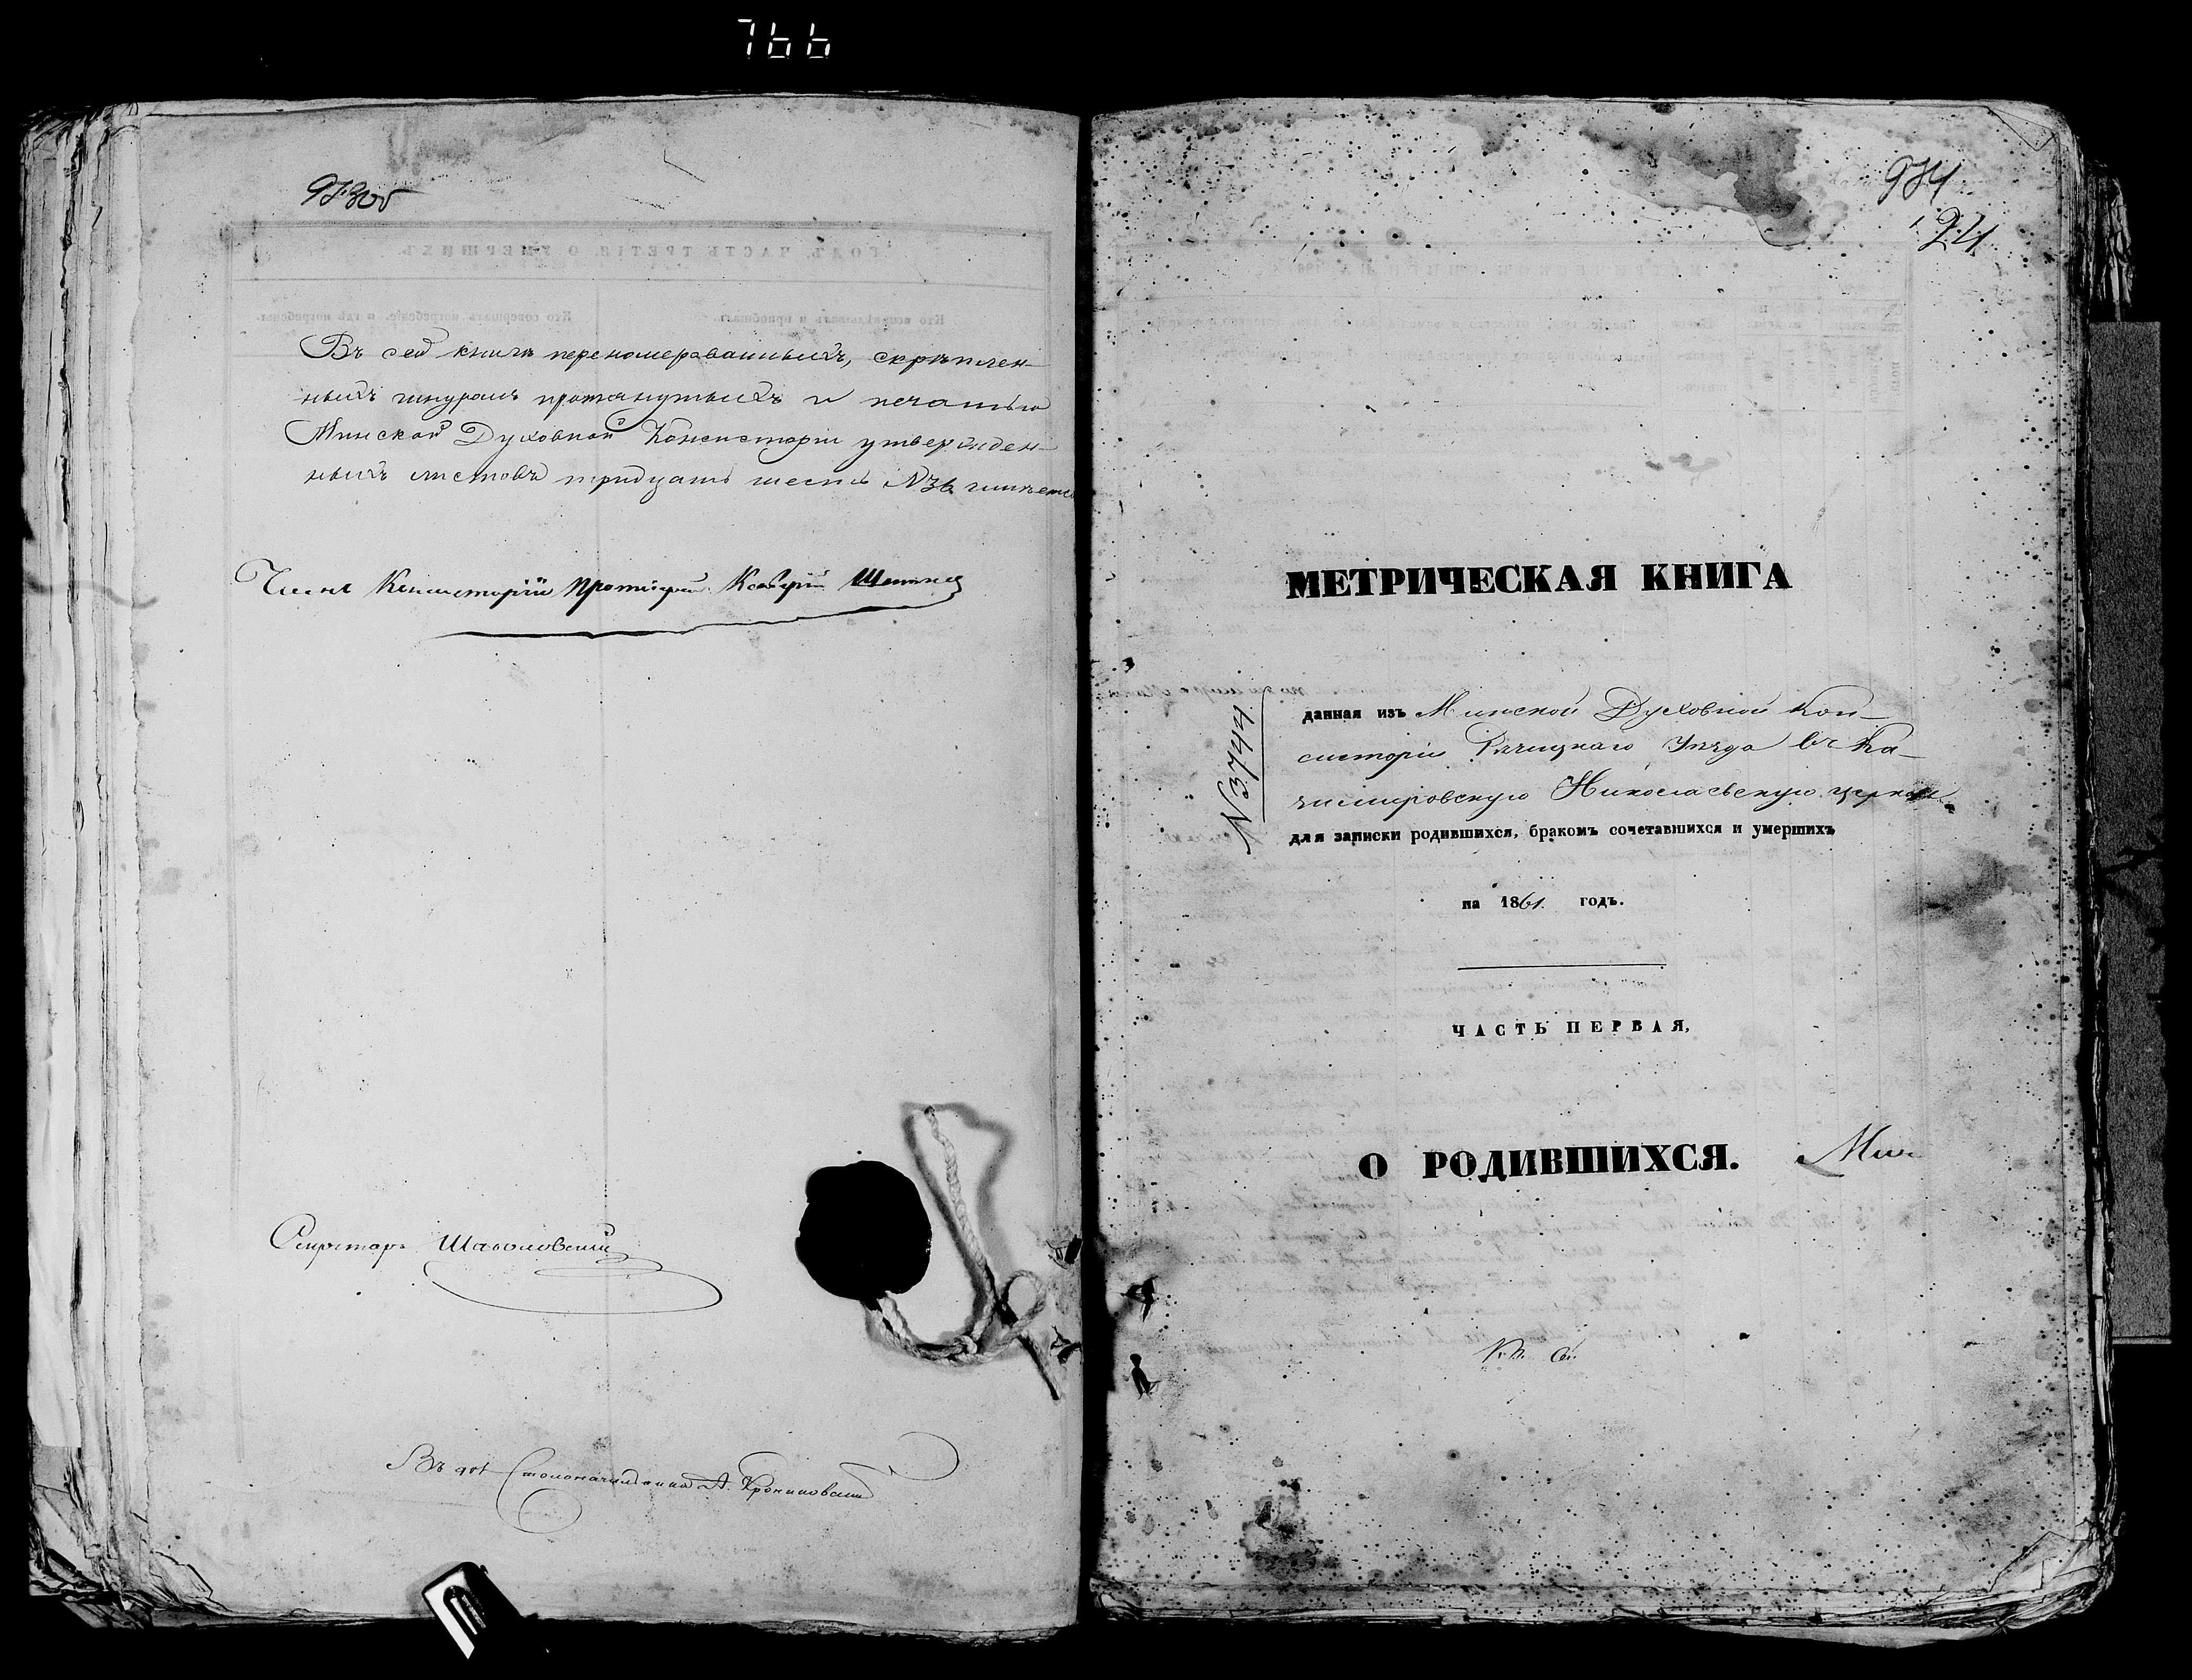 766
973об
Въ сей книгѣ перенумерованныхъ, скрѣплен-
ныхъ шнуромъ протянутыхъ и печатью
Минской Духовной Консисторіи утвержден-
ныхъ листовъ тридцать шесть №36 имѣется
Членъ Консисторіи Протоіерей
Секретарь
Въ дол. Столоначальника А.
974
24
МЕТРИЧЕСКАЯ КНИГА
№3744
данная изъ Минской Духовной Кон-
систоріи Рѣчицкаго Уѣзда въ Ка-
зимировскую Николаевскую церковь
для записки родившихся, бракомъ сочетавшихся и умершихъ
на 1861. годъ.
ЧАСТЬ ПЕРВАЯ,
О РОДИВШИХСЯ.